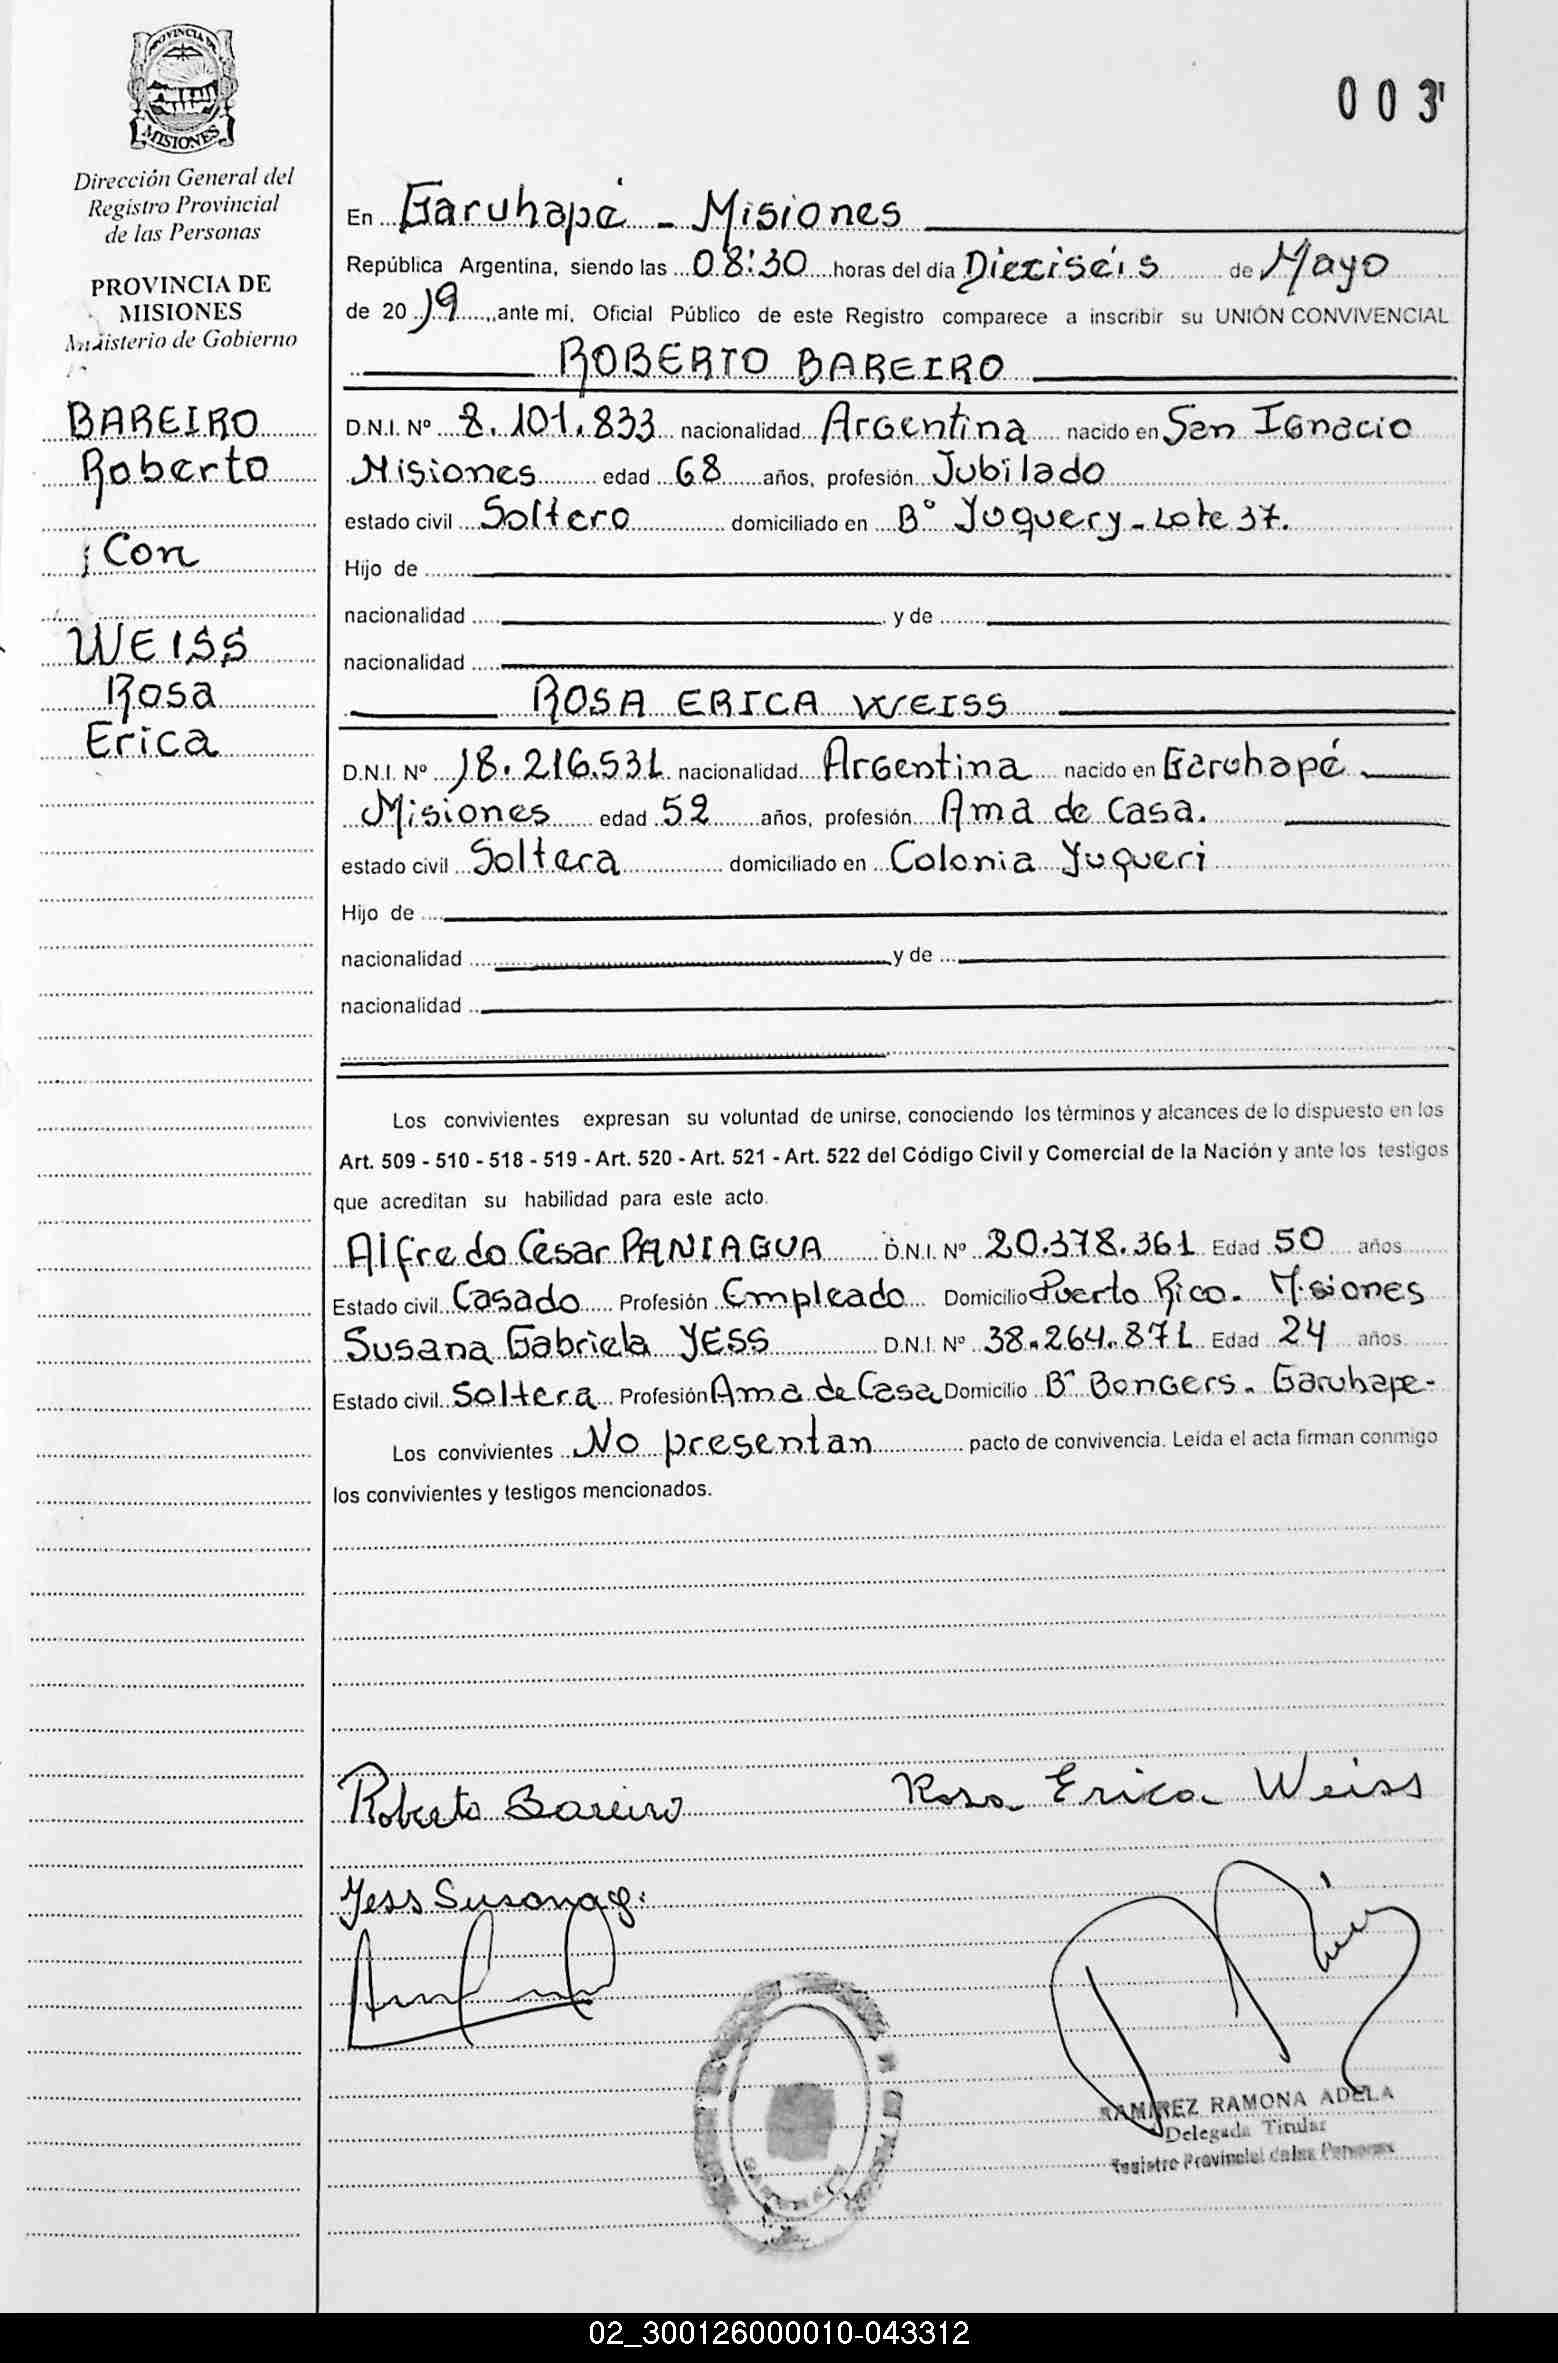 PROVINCIA DE
MISIONES
Dirección General del
Registro Provincial
de las Personas
PROVINCIA DE
MISIONES
Ministerio de Gobierno
BAREIRO
Roberto
Con
WEISS
Rosa
Erica
003
En Garuhapé - Misiones
República Argentina, siendo las 08:30 horas del día Dieciséis de Mayo
de 2019, ante mí, Oficial Público de este Registro comparece a inscribir su UNIÓN CONVIVENCIAL
ROBERTO BAREIRO
D.N.I. Nº 8.101.833 nacionalidad Argentina nacido en San Ignacio
Misiones edad 68 años, profesión Jubilado
estado civil Soltero domiciliado en Bº Yuquery - Lote 37.
Hijo de
nacionalidad y de
nacionalidad
ROSA ERICA WEISS
D.N.I. Nº 18.216.531 nacionalidad Argentina nacido en Garuhapé
Misiones edad 52 años, profesión Ama de Casa.
estado civil Soltera domiciliado en Colonia Yuqueri
Hijo de
nacionalidad y de
nacionalidad
Los convivientes expresan su voluntad de unirse, conociendo los términos y alcances de lo dispuesto en los
Art. 509 - 510 - 518 - 519 - Art. 520 - Art. 521 - Art. 522 del Código Civil y Comercial de la Nación y ante los testigos
que acreditan su habilidad para este acto.
Alfredo Cesar PANIAGUA D.N.I. Nº 20.378.361 Edad 50 años
Estado civil Casado Profesión Empleado Domicilio Puerto Rico. Misiones
Susana Gabriela YESS D.N.I. Nº 38.264.871 Edad 24 años
Estado civil Soltera Profesión Ama de Casa Domicilio Bº Bongers. Garuhape-
Los convivientes No presentan pacto de convivencia. Leída el acta firman conmigo
los convivientes y testigos mencionados.
Roberto Bareiro
Rosa Erica Weiss
Yess Susana g:
RAMIREZ RAMONA ADELA
Delegada Titular
Registro Provincial de las Personas
02_300126000010-043312